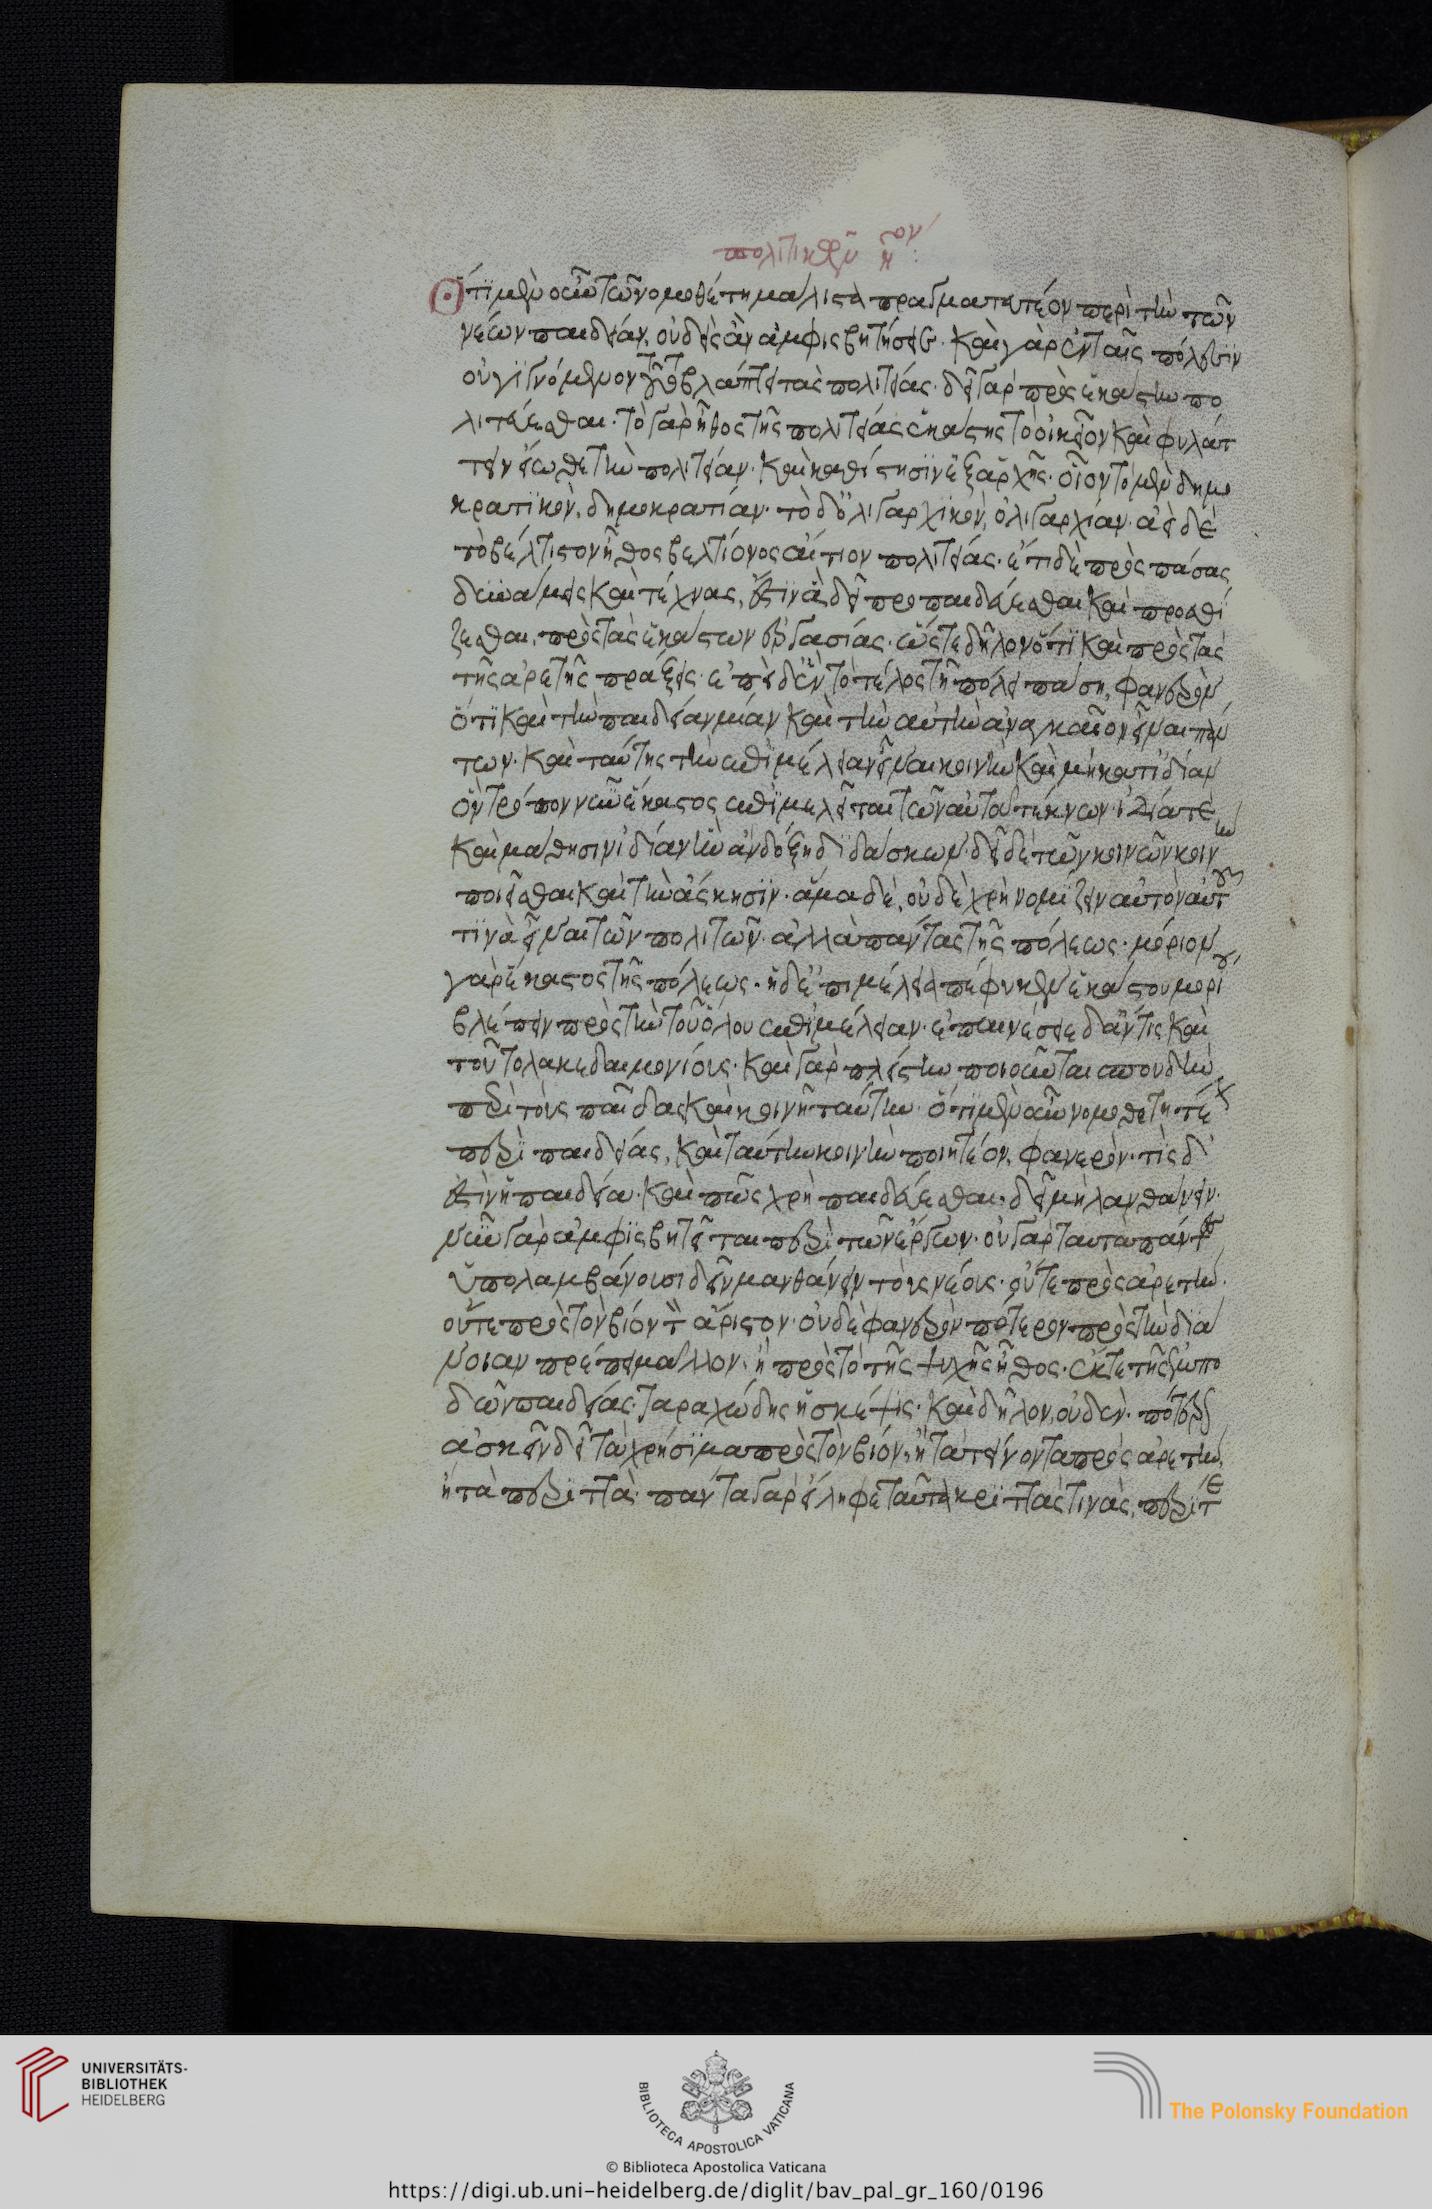 πολιτικῶν ηον:
Ὅτι μὲν οὖν τῶ νομοθέτη μάλιστα πραγματευτέον περὶ τὴν τῶν
νέων παιδείαν, οὐδεὶς ἂν ἀμφισβητήσειε. καὶ γὰρ ἐν ταῖς πόλεσιν
οὐ γιγνόμενον τοῦτο βλάπτει τὰς πολιτείας. δεῖ γὰρ πρὸς ἑκάστην πο
λιτεύεσθαι. τὸ γὰρ ἦθος τῆς πολιτείας ἑκάστης τὸ οἰκεῖον καὶ φυλάτ
τειν εἴωθε τὴν πολιτείαν. καὶ καθίστησιν ἐξ ἀρχῆς. οἷον τὸ μὲν δημο
κρατικὸν, δημοκρατίαν. τὸ δ' ὀλιγαρχικὸν, ὀλιγαρχίαν. ἀεὶ δὲ
τὸ βέλτιστον ἦθος βελτίονος αἴτιον πολιτείας. ἔτι δὲ πρὸς πάσας
δυνάμεις καὶ τέχνας, ἔστιν ἃ δεῖ προπαιδεύεσθαι καὶ προεθί
ζεσθαι, πρὸς τὰς ἑκάστων ἐργασίας. ὥστε δῆλον ὅτι καὶ πρὸς τὰς
τῆς ἀρετῆς πράξεις. ἐπεὶ δ' ἓν τὸ τέλος τῇ πόλει πάσῃ, φανερὸν
ὅτι καὶ τὴν παιδείαν μίαν καὶ τὴν αὐτὴν ἀναγκαῖον εἶναι πάν
των. καὶ ταύτης τὴν ἐπιμέλειαν εἶναι κοινὴν καὶ μὴ κατ' ἰδίαν
ὃν τρόπον νῦν ἕκαστος ἐπιμελεῖται τῶν αὑτοῦ τέκνων. ἰδίᾳ τε
καὶ μάθησιν ἰδίαν ἣν ἂν δόξῃ διδάσκων. δεῖ δὲ τῶν κοινῶν κοινὴν
ποιεῖσθαι καὶ τὴν ἄσκησιν. ἅμα δὲ, οὐδὲ χρὴ νομίζειν αὐτὸν αὑτοῦ
τινὰ εἶναι τῶν πολιτῶν. ἀλλὰ πάντας τῆς πόλεως. μόριον
γὰρ ἕκαστος τῆς πόλεως. ἡ δ' ἐπιμέλεια πέφυκεν ἑκάστου μορίου
βλέπειν πρὸς τὴν τοῦ ὅλου ἐπιμέλειαν. ἐπαινέσειε δ' ἄν τις καὶ
τοῦτο λακεδαιμονίους. καὶ γὰρ πλείστην ποιοῦνται σπουδὴν
περὶ τοὺς παῖδας καὶ κοινῇ ταύτην. ὅτι μὲν οὖν νομοθετητέον
περὶ παιδείας, καὶ ταύτην κοινὴν ποιητέον, φανερόν. τίς δ'
ἐστὶν ἡ παιδεία. καὶ πῶς χρὴ παιδεύεσθαι. δεῖ μὴ λανθάνειν.
νῦν γὰρ ἀμφισβητεῖται περὶ τῶν ἔργων. οὐ γὰρ ταυτὰ πάντες
ὑπολαμβάνουσι δεῖν μανθάνειν τοὺς νέους. οὔτε πρὸς ἀρετὴν.
οὔτε πρὸς τὸν βίον τὸν ἄριστον. οὐδὲ φανερὸν πότερον πρὸς τὴν διά
νοιαν πρέπει μᾶλλον, ἢ πρὸς τὸ τῆς ψυχῆς ἦθος. ἔκ τε τῆς ἐμπο
δὼν παιδείας. ταραχώδης ἡ σκέψις. καὶ δῆλον, οὐδέν. πότερον
ἀσκεῖν δεῖ τὰ χρήσιμα πρὸς τὸν βίον, ἢ τὰ τείνοντα πρὸς ἀρετὴν,
ἢ τὰ περιττά. πάντα γὰρ εἴληφε ταῦτα κριτάς τινας, περί τε
UNIVERSITÄTS-
BIBLIOTHEK
HEIDELBERG
BIBLIOTECA APOSTOLICA VATICANA
The Polonsky Foundation
© Biblioteca Apostolica Vaticana
https://digi.ub.uni-heidelberg.de/diglit/bav_pal_gr_160/0196